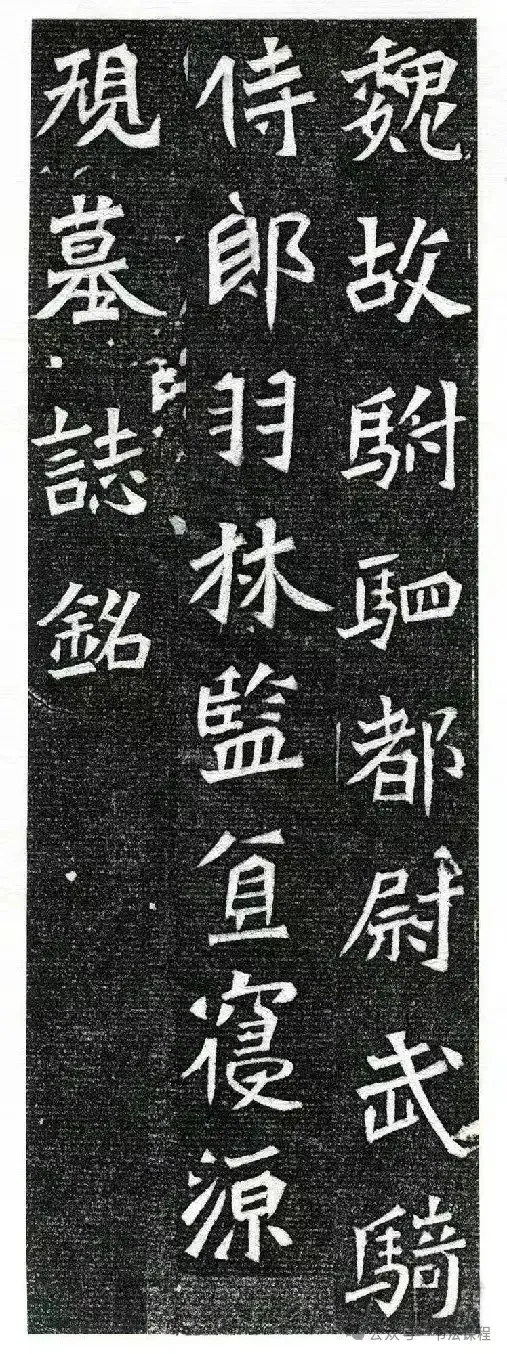 魏故駙駟都尉武騎
侍郎羽林監直寢源
墓誌銘
公众号 · 书法课程